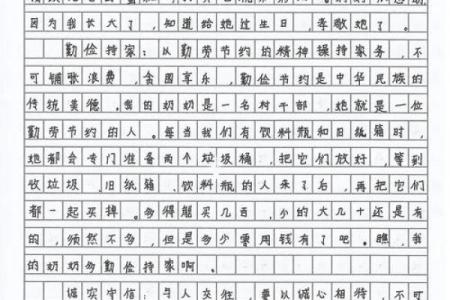 因为我长大了，知道给她过生日，孝敬她了。
勤俭持家：以勤劳节约的精神操持家务，不
可铺张浪费，贪图享乐，勤俭节约是中华民族的
传统美德。我的奶奶是一名村干部，她就是一位
勤劳节约的人。每当我们有饮料瓶和旧纸箱时，
她都会专门准备两个垃圾桶，把它们放好，等到
收垃圾、旧纸箱、饮料瓶的人来了后，再把它们
都一起买掉。多得能买几百，少的大几十还是有
的，须然不多，但是多少需用钱有了吧。瞧，我
的奶奶多勤俭持家啊。
诚实守信：与人交往，要以诚心相待，不可